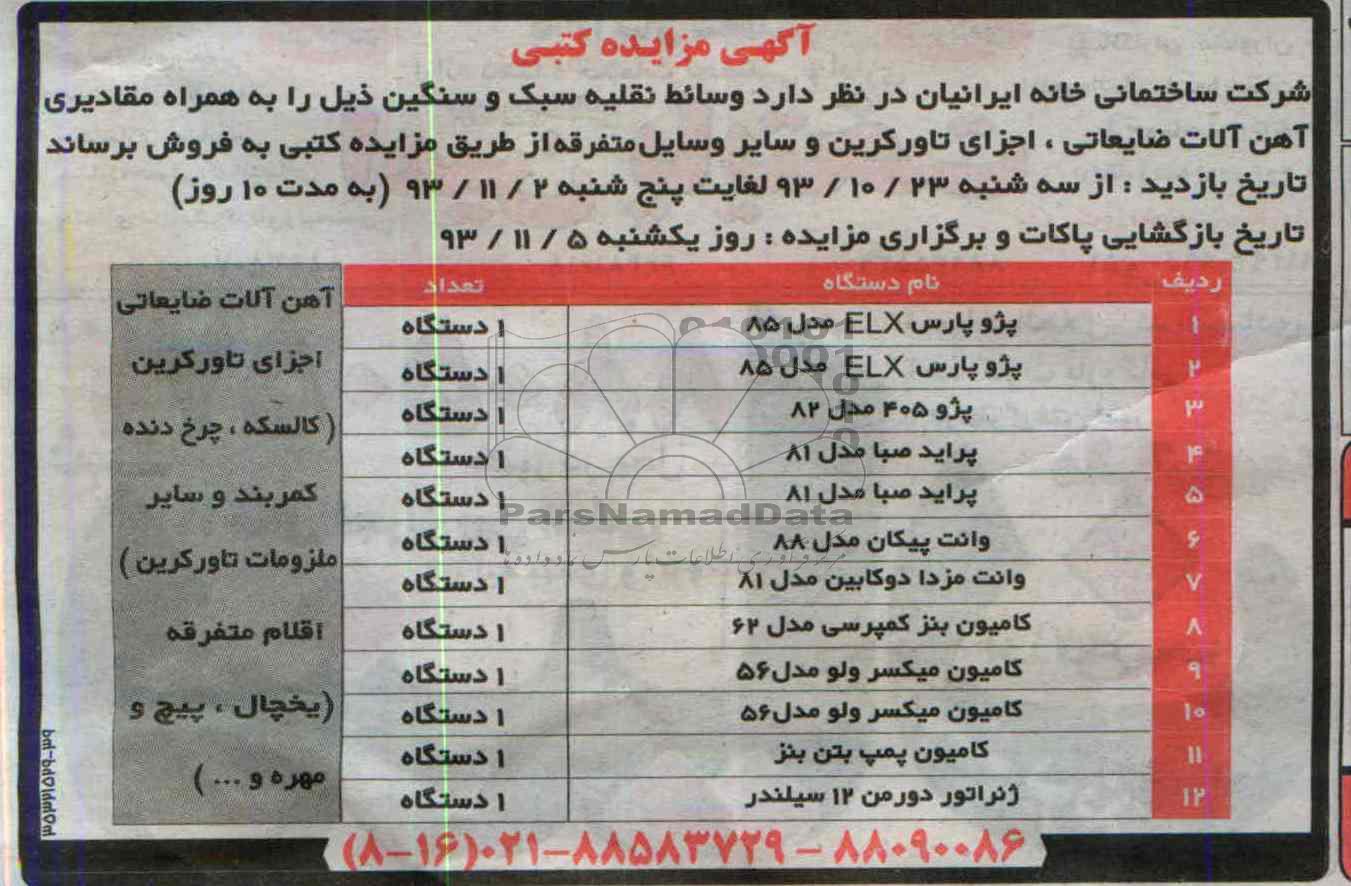 آگهی مزایده کتبی
شرکت ساختمانی خانه ایرانیان در نظر دارد وسائط نقلیه سبک و سنگین ذیل را به همراه مقادیری
آهن آلات ضایعاتی ، اجزای تاورکرین و سایر وسایل متفرقه از طریق مزایده کتبی به فروش برساند
تاریخ بازدید : از سه شنبه ۲۳ / ۱۰ / ۹۳ لغایت پنج شنبه ۲ / ۱۱ / ۹۳ (به مدت ۱۰ روز)
تاریخ بازگشایی پاکات و برگزاری مزایده : روز یکشنبه ۵ / ۱۱ / ۹۳
ردیف نام دستگاه تعداد
۱ پژو پارس ELX مدل ۸۵ ۱ دستگاه
۲ پژو پارس ELX مدل ۸۵ ۱ دستگاه
۳ پژو ۴۰۵ مدل ۸۲ ۱ دستگاه
۴ پراید صبا مدل ۸۱ ۱ دستگاه
۵ پراید صبا مدل ۸۱ ۱ دستگاه
۶ وانت پیکان مدل ۸۸ ۱ دستگاه
۷ وانت مزدا دوکابین مدل ۸۱ ۱ دستگاه
۸ کامیون بنز کمپرسی مدل ۶۲ ۱ دستگاه
۹ کامیون میکسر ولو مدل۵۶ ۱ دستگاه
۱۰ کامیون میکسر ولو مدل۵۶ ۱ دستگاه
۱۱ کامیون پمپ بتن بنز ۱ دستگاه
۱۲ ژنراتور دورمن ۱۲ سیلندر ۱ دستگاه
آهن آلات ضایعاتی
اجزای تاورکرین
( کالسکه ، چرخ دنده
کمربند و سایر
ملزومات تاورکرین )
اقلام متفرقه
(یخچال ، پیچ و
مهره و ... )
۸۸۰۹۰۰۸۶ - ۸۸۵۸۳۷۲۹-۰۲۱(۱۶-۸)
ParsNamadData